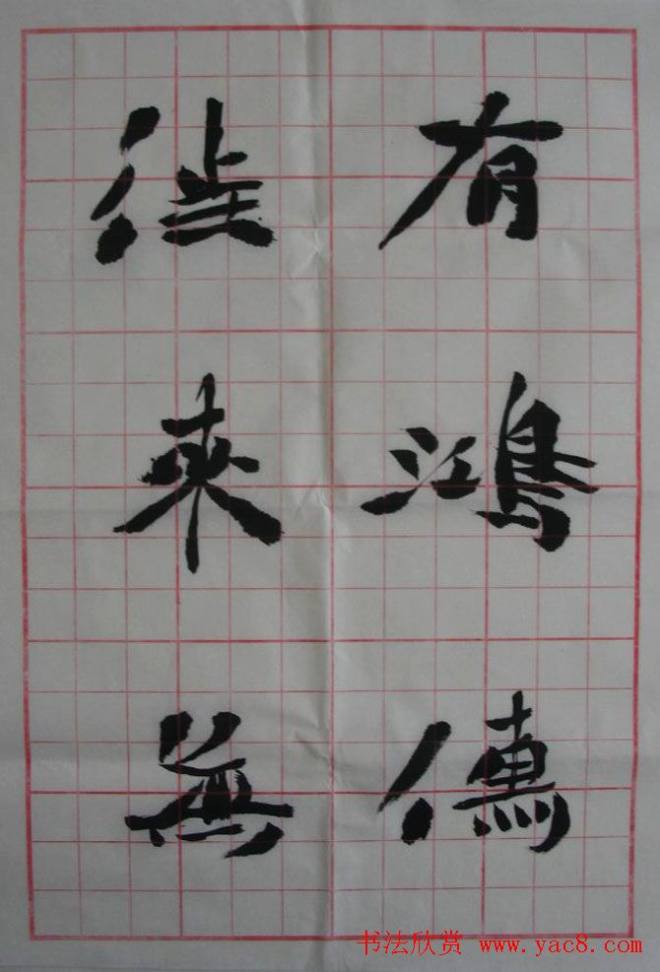 有鴻儒
往來無
书法欣赏 www.yac8.com